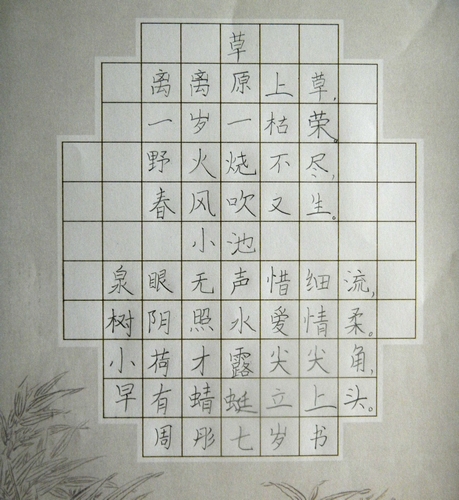 草
离离原上草,
一岁一枯荣。
野火烧不尽,
春风吹又生。
小池
泉眼无声惜细流,
树阴照水爱情柔。
小荷才露尖尖角,
早有蜻蜓立上头。
周彤七岁书